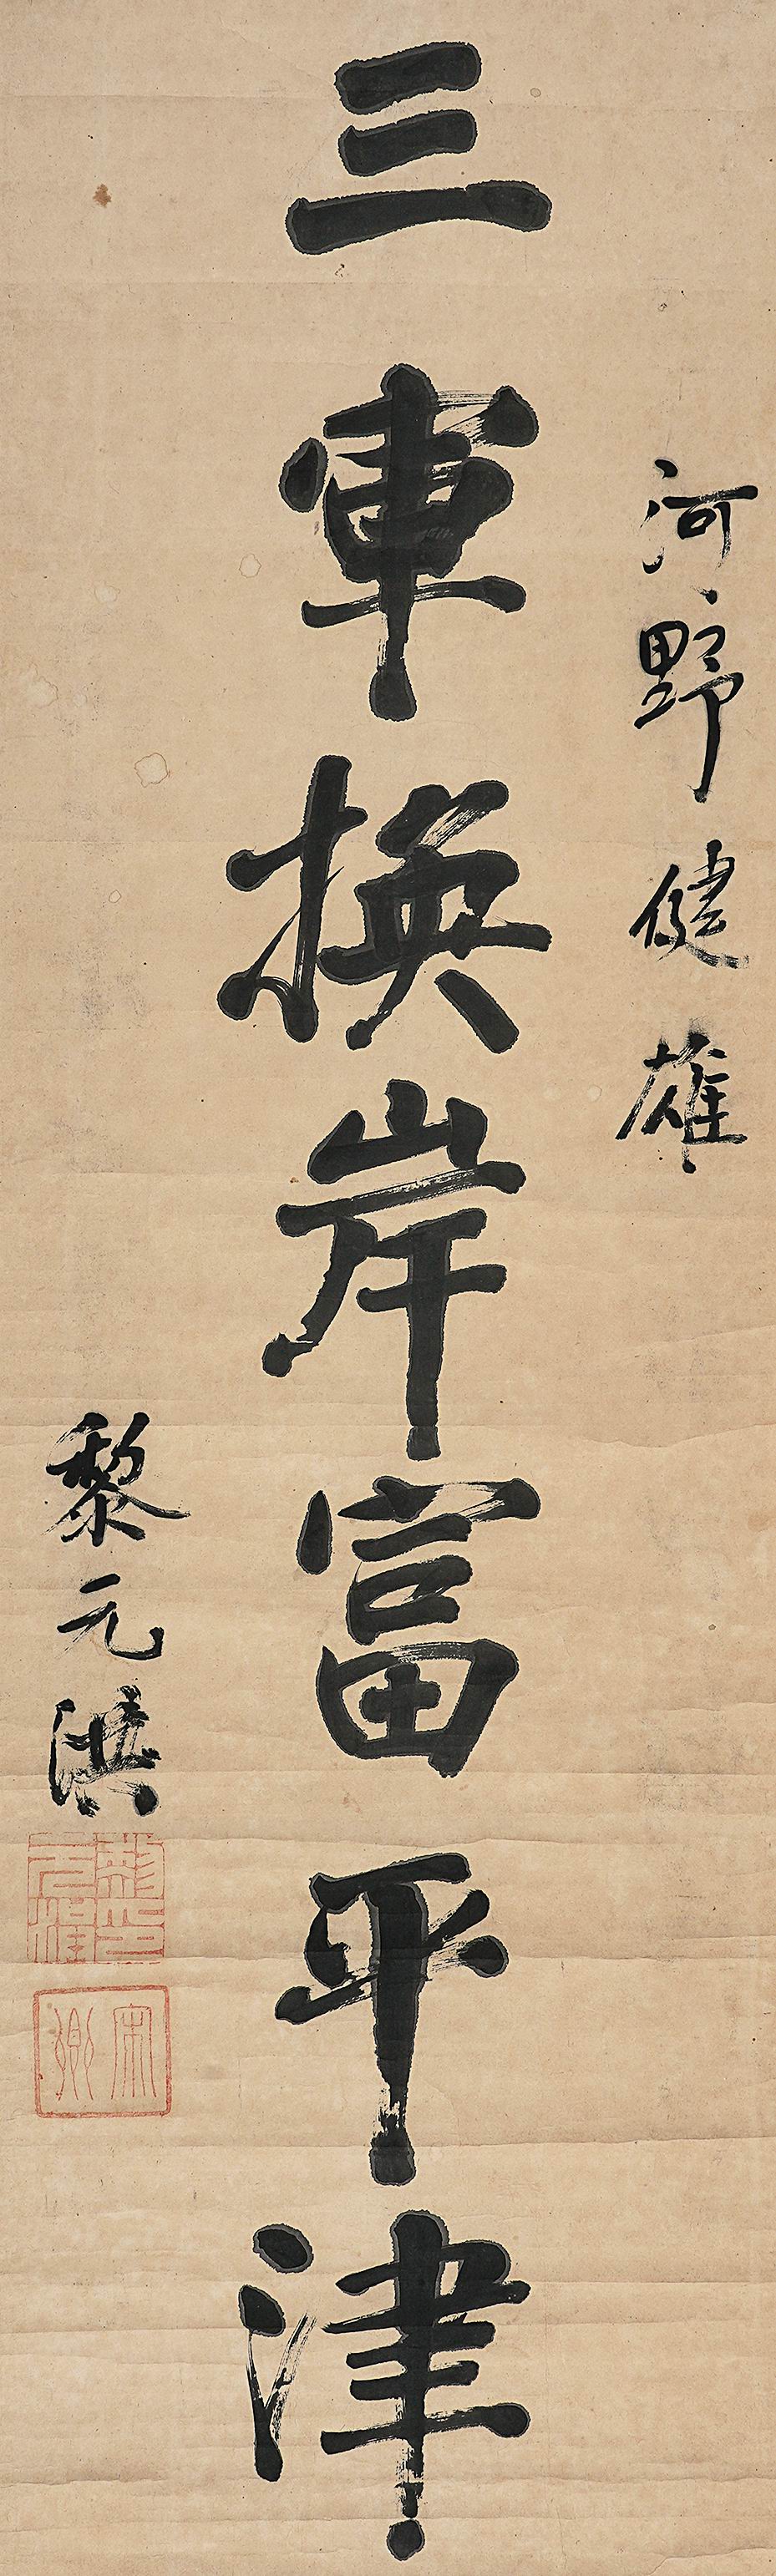 河野健雄
三軍換岸富平津
黎元洪
黎元洪印
宋卿